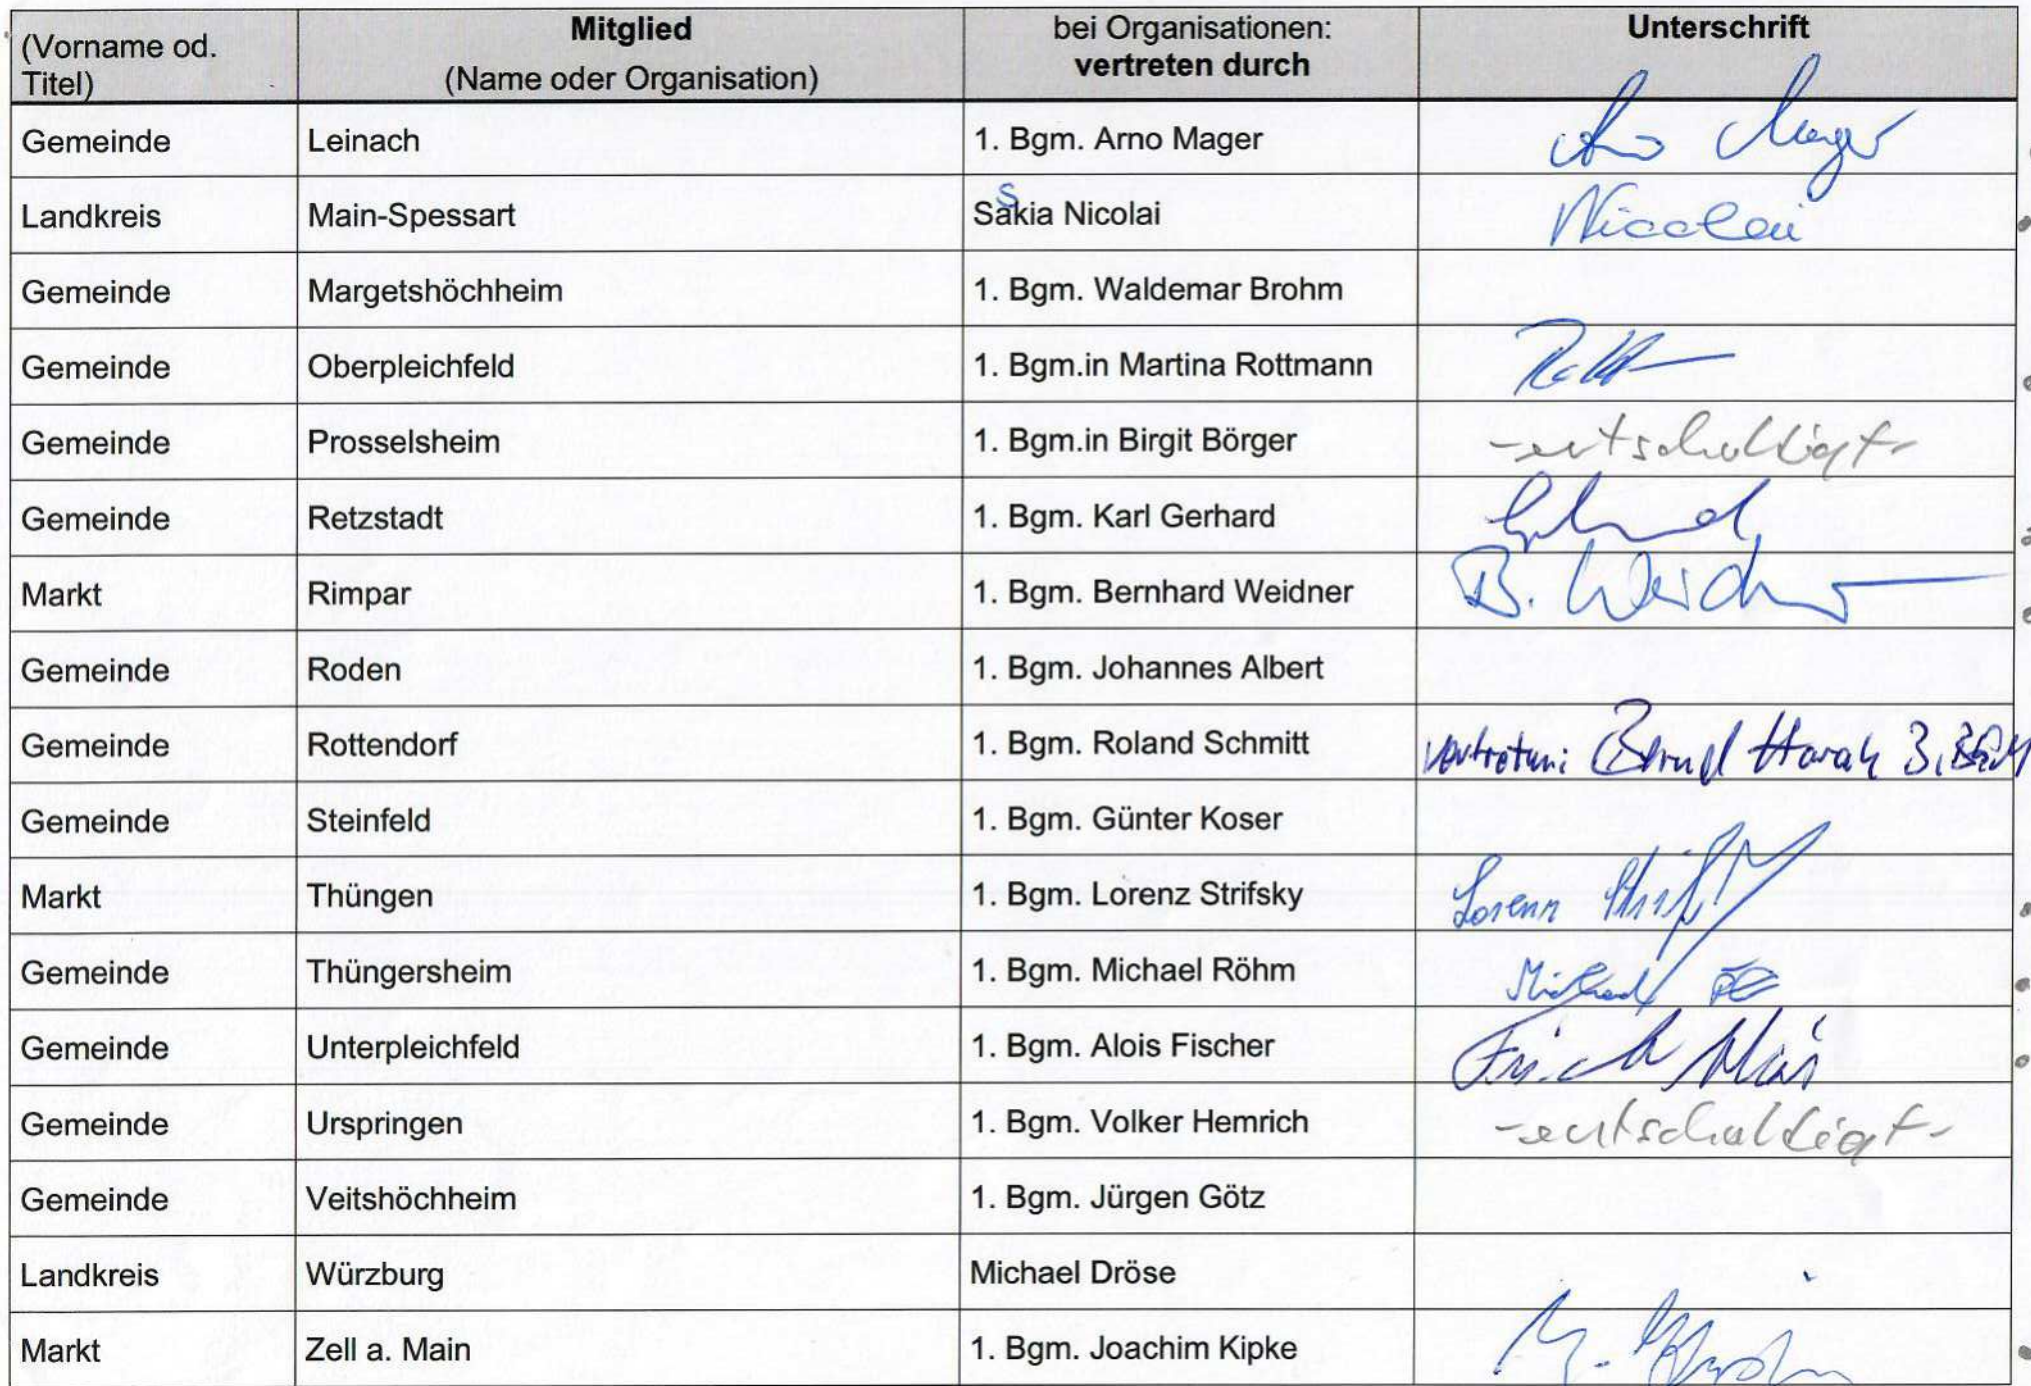 (Vorname od. Titel) Mitglied (Name oder Organisation) bei Organisationen: vertreten durch Unterschrift
Gemeinde Leinach 1. Bgm. Arno Mager Arno Mager
Landkreis Main-Spessart Sakia Nicolai s Nicolai
Gemeinde Margetshöchheim 1. Bgm. Waldemar Brohm
Gemeinde Oberpleichfeld 1. Bgm.in Martina Rottmann
Gemeinde Prosselsheim 1. Bgm.in Birgit Börger -entschuldigt-
Gemeinde Retzstadt 1. Bgm. Karl Gerhard
Markt Rimpar 1. Bgm. Bernhard Weidner B. Weidner
Gemeinde Roden 1. Bgm. Johannes Albert
Gemeinde Rottendorf 1. Bgm. Roland Schmitt Bernd 3. BGM
Gemeinde Steinfeld 1. Bgm. Günter Koser
Markt Thüngen 1. Bgm. Lorenz Strifsky Lorenz Strifsky
Gemeinde Thüngersheim 1. Bgm. Michael Röhm Michael
Gemeinde Unterpleichfeld 1. Bgm. Alois Fischer
Gemeinde Urspringen 1. Bgm. Volker Hemrich -entschuldigt-
Gemeinde Veitshöchheim 1. Bgm. Jürgen Götz
Landkreis Würzburg Michael Dröse
Markt Zell a. Main 1. Bgm. Joachim Kipke